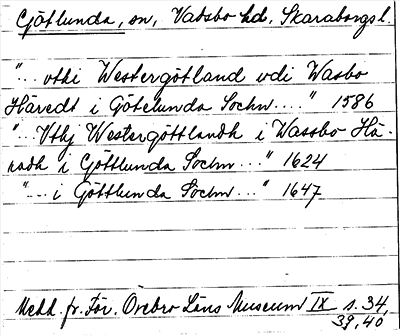 Götlunda, sn, Vadsbo hd, Skaraborgs l.
"... uthi Westergötland vdi Wasbo
Häredt i Götelunda Sochn ...." 1586
"... Vthj Westergöttlandh i Wassbo Hä-
radh i Göttlunda Sochn ..." 1624
"... i Göttlunda Sochn ..." 1647
Medd. fr. För. Örebro Läns Museum IX s. 34,
39, 40